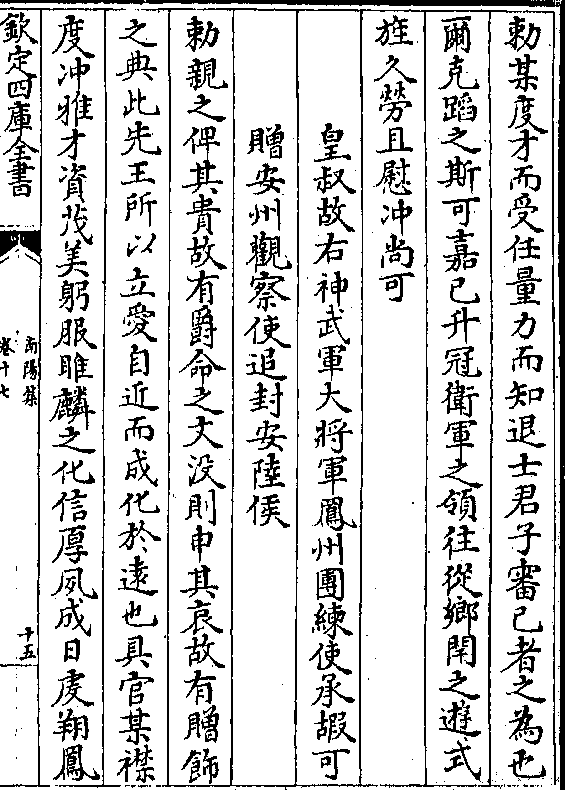 勅某度才而受任量力而知退士君子審己者之為也
爾克蹈之斯可嘉已升冠衛軍之領往從鄉閈之遊式
旌久勞且慰沖尚可
皇叔故右神武軍大將軍鳳州團練使承嘏可
贈安州觀察使追封安陸侯
勅親之俾其貴故有爵命之文没則申其哀故有贈飾
之典此先王所以立愛自近而成化於逺也具官某襟
度沖雅才資茂美躬服雎麟之化信厚夙成日處翔鳳
欽定四庫全書
南陽集
卷十七
十五